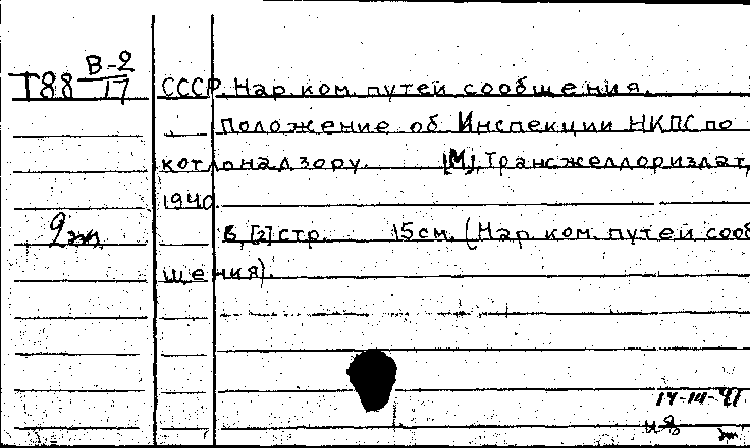 В-2
Т88 17
СССР. Нар. ком. путей сообщения.
Положение об Инспекции НКПС по
котлонадзору. [М], Трансжелдориздат,
1940
8, [2] стр. 15 см. (Нар. ком. путей сооб
щения).
2 эк.